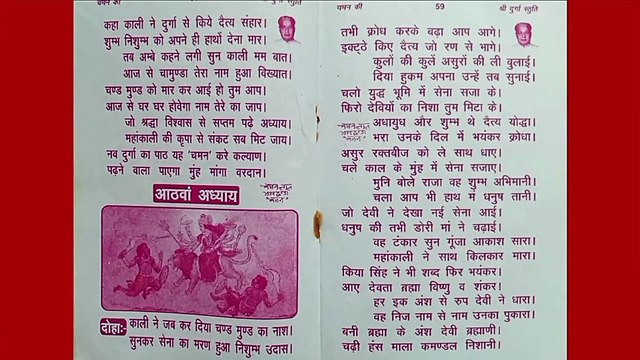 चमन की
कहा काली ने दुर्गा से किये दैत्य संहार।
शुम्भ निशुम्भ को अपने ही हाथों देना मार।
तब अम्बे कहने लगी सुन काली मम बात।
आज से चामुण्डा तेरा नाम हुआ विख्यात।
चण्ड मुण्ड को मार कर आई हो तुम आप।
आज से घर घर होवेगा नाम तेरे का जाप।
जो श्रद्धा विश्वास से सप्तम पढ़े अध्याय।
महांकाली की कृपा से संकट सब मिट जाय।
नव दुर्गा का पाठ यह 'चमन' करे कल्याण।
पढ़ने वाला पाएगा मुंह मांगा वरदान।
आठवां अध्याय
दोहाः- काली ने जब कर दिया चण्ड मुण्ड का नाश।
सुनकर सेना का मरण हुआ निशुम्भ उदास।
चमन की 59 श्री दुर्गा स्तुति
तभी क्रोध करके बढ़ा आप आगे।
इक्ट्ठे किए दैत्य जो रण से भागे।
कुलों की कुलें असुरों की ली बुलाई।
दिया हुकम अपना उन्हें तब सुनाई।
चलो युद्ध भूमि में सेना सजा के।
फिरो देवियों का निशा तुम मिटा के।
अधायुध और शुम्भ थे दैत्य योद्धा।
भरा उनके दिल में भयंकर क्रोधा।
असुर रक्तबीज को ले साथ धाए।
चले काल के मुंह में सेना सजाए।
मुनि बोले राजा वह शुम्भ अभिमानी।
चला आप भी हाथ में धनुष तानी।
जो देवी ने देखा नई सेना आई।
धनुष की तभी डोरी मां ने चढ़ाई।
वह टंकार सुन गूंजा आकाश सारा।
महांकाली ने साथ किलकार मारा।
किया सिंह ने भी शब्द फिर भयंकर।
आए देवता ब्रह्मा विष्णु व शंकर।
हर इक अंश से रुप देवी ने धारा।
वह निज नाम से नाम उनका पुकारा।
बनी ब्रह्मा के अंश देवी ब्रह्माणी।
चढ़ी हंस माला कमण्डल निशानी।